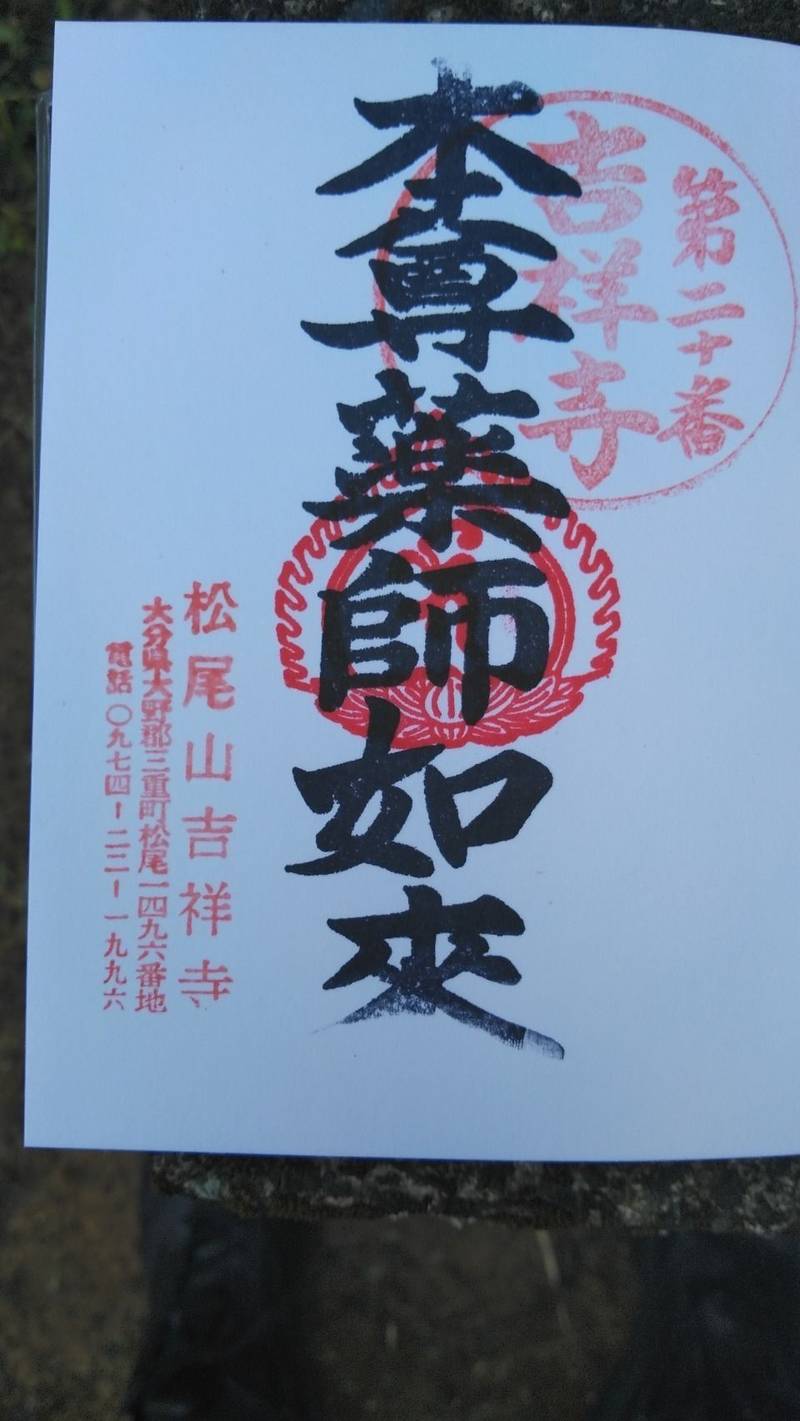 第二十番
吉祥寺
本尊薬師如来
松尾山吉祥寺
大分県大野郡三重町松尾一四九六番地
電話〇九七四ー二二ー一九九六